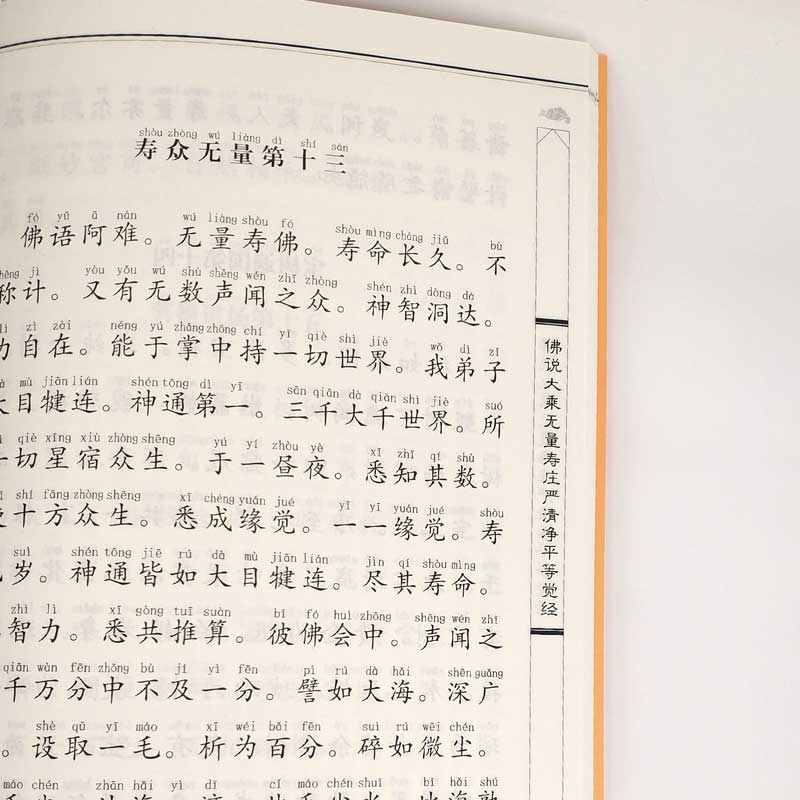 shòu zhòng wú liàng dì shí sān
寿众无量第十三
fó yǔ ā nán wú liàng shòu fó shòu mìng cháng jiǔ bù
佛语阿难。无量寿佛。寿命长久。不
chēng jì yòu yǒu wú shù shēng wén zhī zhòng shén zhì dòng dá
称计。又有无数声闻之众。神智洞达。
lì zì zài néng yú zhǎng zhōng chí yī qiè shì jiè wǒ dì zǐ
力自在。能于掌中持一切世界。我弟子
dà mù jiān lián shén tōng dì yī sān qiān dà qiān shì jiè suǒ
大目犍连。神通第一。三千大千世界。所
qiè xīng xiù zhòng shēng yú yí zhòu yè xī zhī qí shù
一切星宿众生。于一昼夜。悉知其数。
shí fāng zhòng shēng xī chéng yuán jué yī yī yuán jué shòu
十方众生。悉成缘觉。一一缘觉。寿
suì shén tōng jiē rú dà mù jiān lián jìn qí shòu mìng
岁。神通皆如大目犍连。尽其寿命。
zhì lì xī gòng tuī suàn bǐ fó huì zhōng shēng wén zhī
智力。悉共推算。彼佛会中。声闻之
qiān wàn fēn zhōng bù jí yì fēn pì rú dà hǎi shēn guǎng
千万分中不及一分。譬如大海。深广
shè qǔ yī máo xī wéi bǎi fēn suì rú wēi chén
。设取一毛。析为百分。碎如微尘。
máo chén zhān hǎi yì dī cǐ máo chén shuǐ bǐ hǎi shú
佛说大乘无量寿庄严清净平等觉经